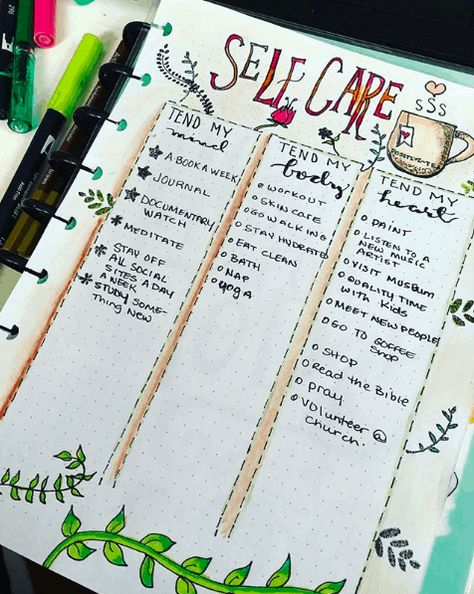 SELF CARE
sss
TEND MY
mind
A BOOK A WEEK
JOURNAL
DOCUMENTARY
WATCH
MEDITATE
STAY OFF
ALL SOCIAL
SITES A DAY
A WEEK
STUDY SOME-
THING NEW
TEND MY
body
WORKOUT
SKIN CARE
GO WALKING
STAY HYDRATED
EAT CLEAN
BATH
NAP
YOGA
TEND MY
heart
PAINT
LISTEN TO A
NEW MUSIC
ARTIST
VISIT MUSEUM
QUALITY TIME
with Kids
MEET NEW PEOPLE
GO TO COFFEE
Shop
SHOP
Read the Bible
pray
Volunteer @
church.